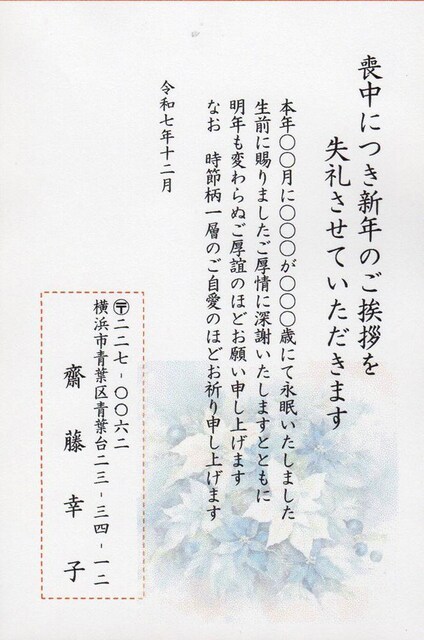 喪中につき新年のご挨拶を
失礼させていただきます
本年〇〇月に〇〇〇が〇〇〇歳にて永眠いたしました
生前に賜りましたご厚情に深謝いたしますとともに
明年も変わらぬご厚誼のほどお願い申し上げます
なお　時節柄一層のご自愛のほどお祈り申し上げます
令和七年十二月
〒二二七-〇〇六二
横浜市青葉区青葉台二三-三四-一二
齋藤幸子